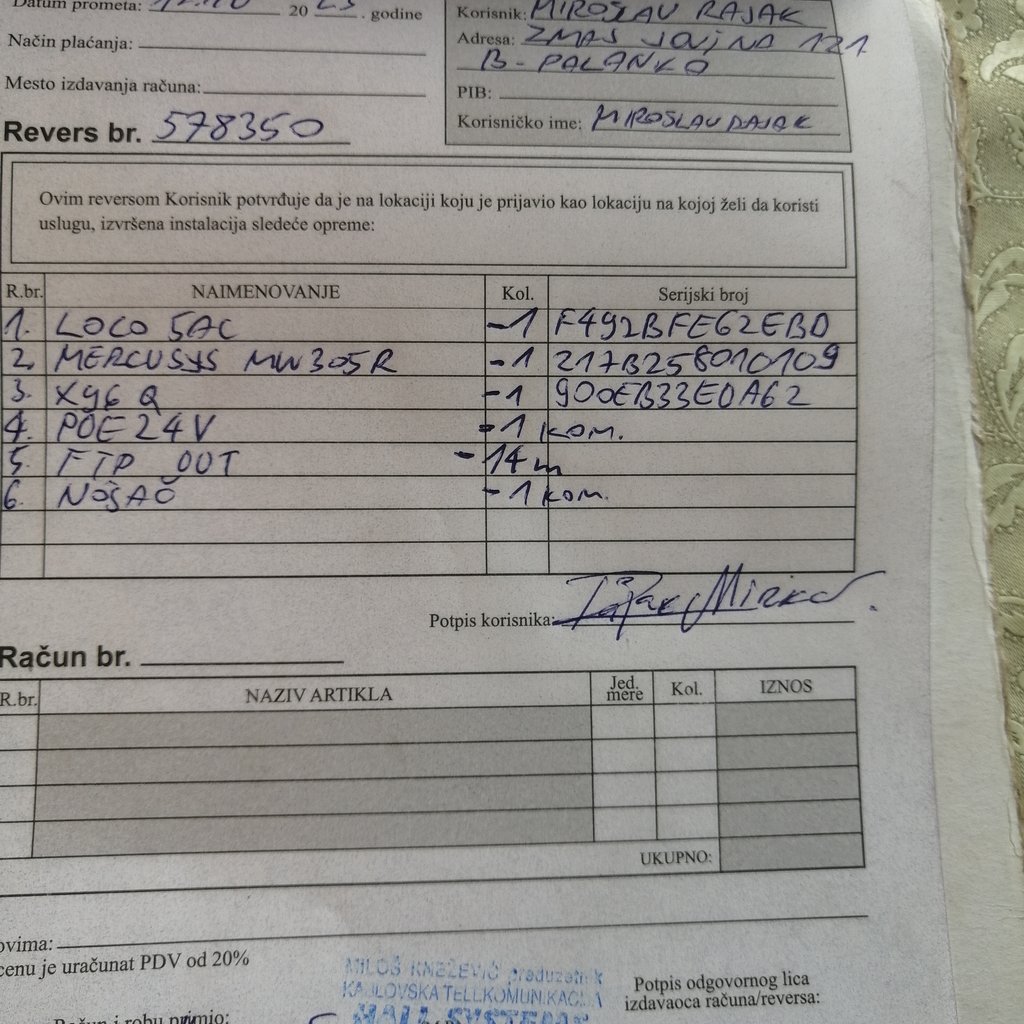 Datum prometa: 20 23. godine
Način plaćanja:
Mesto izdavanja računa:
Korisnik: MIROSLAV RAJAK
Adresa: ZMAJ JOVINA 121
B-PALANKA
PIB:
Korisničko ime: MIROSLAVRAJAK
Revers br. 578350
Ovim reversom Korisnik potvrđuje da je na lokaciji koju je prijavio kao lokaciju na kojoj želi da koristi
uslugu, izvršena instalacija sledeće opreme:
R.br. NAIMENOVANJE Kol. Serijski broj
1. LOCO 5AC -1 F492BFE62EBD
2. MERCUSYS MW305R -1 217B258010109
3. X96 Q -1 900EB33E0A62
4. POE 24V -1 kom.
5. FTP OUT -14m
6. NOSAČ -1 kom.
Potpis korisnika: Rajak Mirko
Račun br.
R.br. NAZIV ARTIKLA Jed. mere Kol. IZNOS
UKUPNO:
ovima:
cenu je uračunat PDV od 20%
MILOŠ KNEŽEVIĆ preduzetnik
KABLOVSKA TELEKOMUNIKACIJA
Potpis odgovornog lica
izdavaoca računa/reversa:
Račun i robu primio: